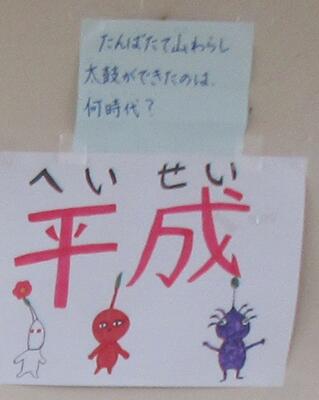 たんばたて山わらし
太鼓ができたのは、
何時代？
へいせい
平成